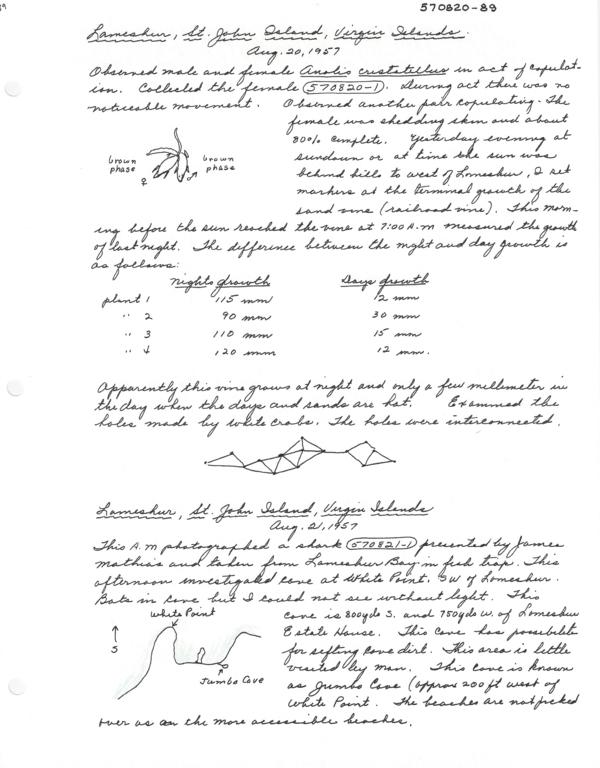 570820-89
Lameshur, St. John Island, Virgin Islands.
Aug. 20, 1957
Observed male and female Anolis cristatellus in act of copulat-
ion. Collected the female (570820-1). During act there was no
noticeable movement. Observed another pair copulating. The
female was shedding skin and about
80% complete. Yesterday evening at
sundown or at time the sun was
behind hills to west of Lameshur, I set
markers at the terminal growth of the
sand vine (railroad vine). This morn-
brown phase ♀
♂ brown phase
ing before the sun reached the vine at 7:00 A.M measured the growth
of last night. The difference between the night and day growth is
as follows:
Nights growth Days growth
plant 1 115 mm 12 mm
" 2 90 mm 30 mm
" 3 110 mm 15 mm
" 4 120 mm 12 mm.
Apparently this vine grows at night and only a few millimeter in
the day when the days and sands are hot. Examined the
holes made by white crabs. The holes were interconnected.
Lameshur, St. John Island, Virgin Islands
Aug. 21, 1957
This A.M photographed a shark (570821-1) presented by James
Mathias and taken from Lameshur Bay in fish trap. This
afternoon investigated cave at White Point, SW of Lameshur.
Bats in cave but I could not see without light. This
cave is 800yds S. and 750yds W. of Lameshur
Estate House. This cave has possibilite
for sifting cave dirt. This area is little
visited by man. This cave is known
as Jumbo Cave (approx 200 ft west of
White Point. The beaches are not picked
White Point
S
Jumbo Cave
over as on the more accessible beaches.